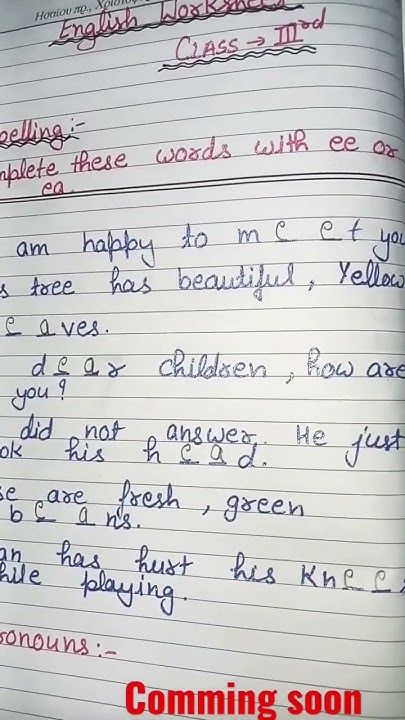 English Worksheet
CLASS → IIIrd
pelling:-
mplete these words with ee or
ea
am happy to m e e t you
s tree has beautiful, Yellow
e a ves.
d e a r children, how are
you?
did not answer. He just
ok his h e a d.
se are fresh, green
b e a ns.
an has hurt his Kn e e
hile playing.
ronouns:-
Comming soon